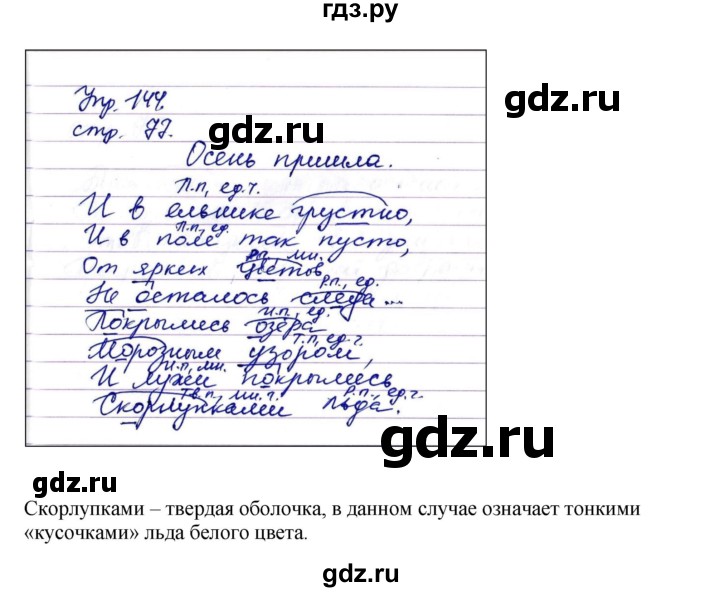 гдз.ру
Упр. 144.
стр. 77.
gdz.ru
gdz.ru
Осень пришла.
П.п, ед.ч.
И в ельнике грустно,
П.п, ед.
И в поле так пусто,
рп., мн.
От ярких цветов
р.п., ед.
Не осталось следа...
и.п., ед.
Покрылись озёра
Т.п, ед.ч
Морозным узором,
и.п., мн.
И лужи покрылись
Тв.п., мн.ч. р.п., ед.ч.
Скорлупками льда.
gdz.ru
gdz.ru
Скорлупками – твердая оболочка, в данном случае означает тонкими
«кусочками» льда белого цвета.
gdz.ru